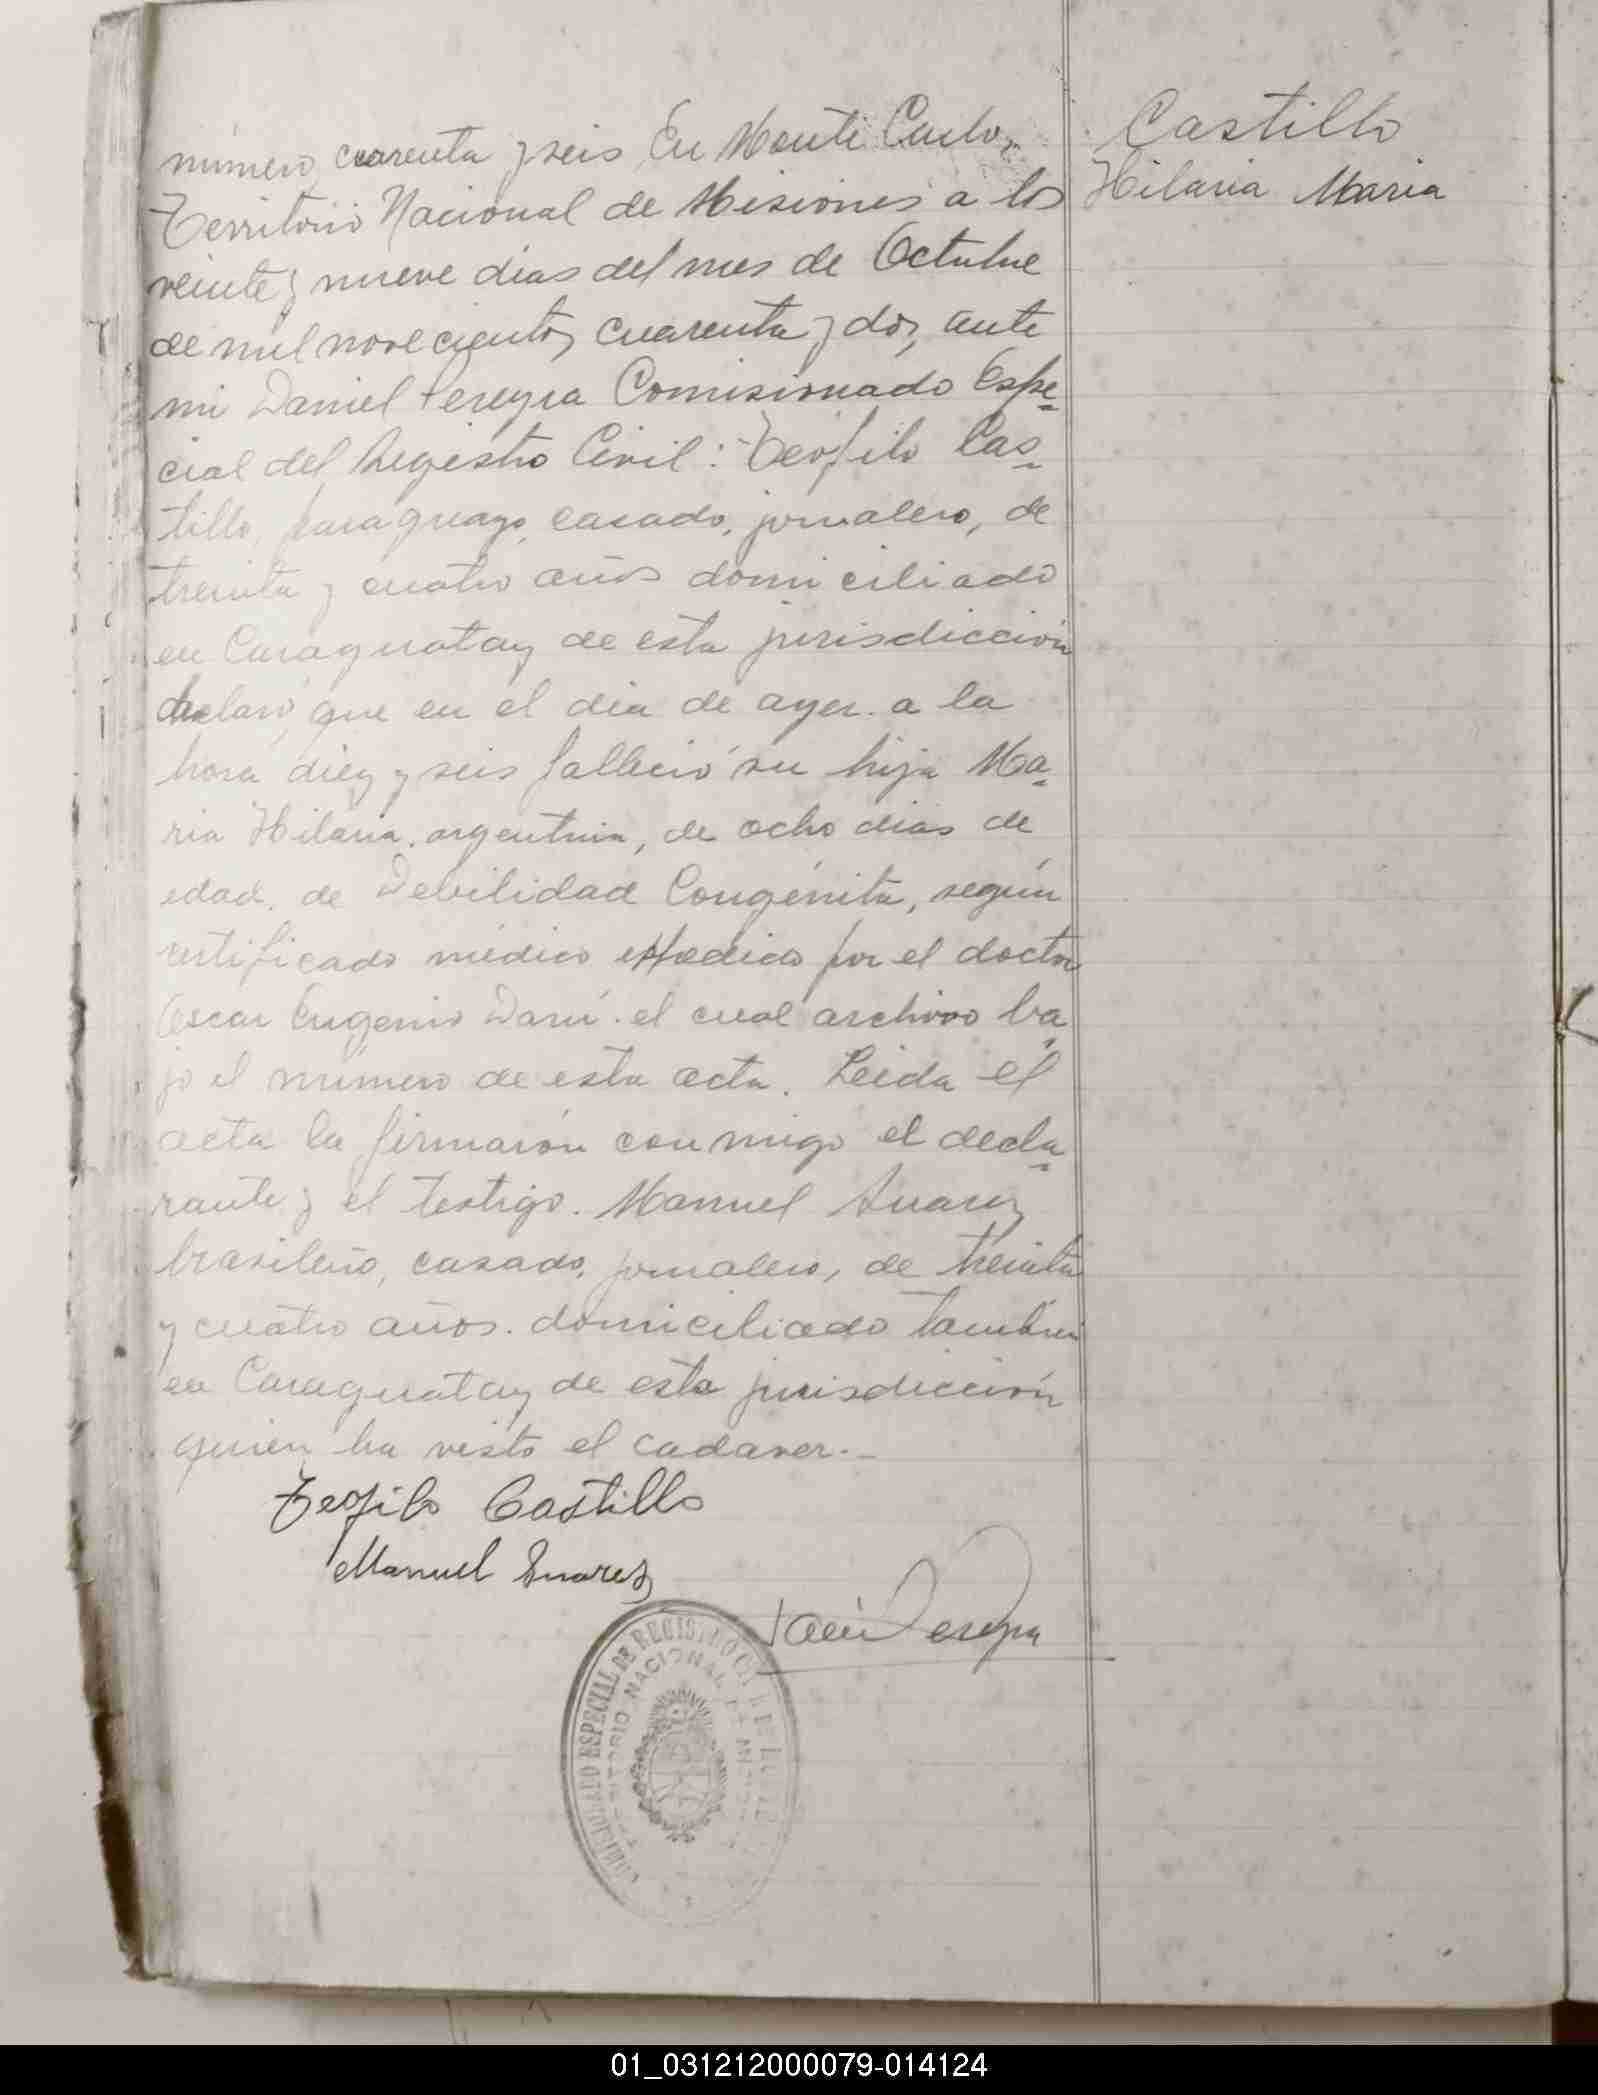 Castillo
Hilaria Maria
número cuarenta y seis En Monte Carlo,
Territorio Nacional de Misiones a los
veinte y nueve dias del mes de Octubre
de mil novecientos cuarenta y dos, ante
mi Daniel Pereyra Comisionado Espe-
cial del Registro Civil: Teofilo Cas-
tillo, paraguayo, casado, jornalero, de
treinta y cuatro años domiciliado
en Caraguatay de esta jurisdicción
declaró, que en el dia de ayer. a la
hora diez y seis falleció su hija Ma-
ria Hilaria. argentina, de ocho dias de
edad. de Debilidad Congénita, según
certificado médico expedido por el doctor
Oscar Eugenio Darú. el cual archivo ba-
jo el número de esta acta. Leida el
acta la firmarón conmigo el decla-
rante y el testigo. Manuel Suarez
brasileño, casado, jornalero, de treinta
y cuatro años. domiciliado tambien
en Caraguatay de esta jurisdicción
quien ha visto el cadaver.-
Teofilo Castillo
Manuel Suarez
Pereyra
COMISIONADO ESPECIAL DE REGISTRO CIVIL
TERRITORIO NACIONAL DE MISIONES
01_031212000079-014124